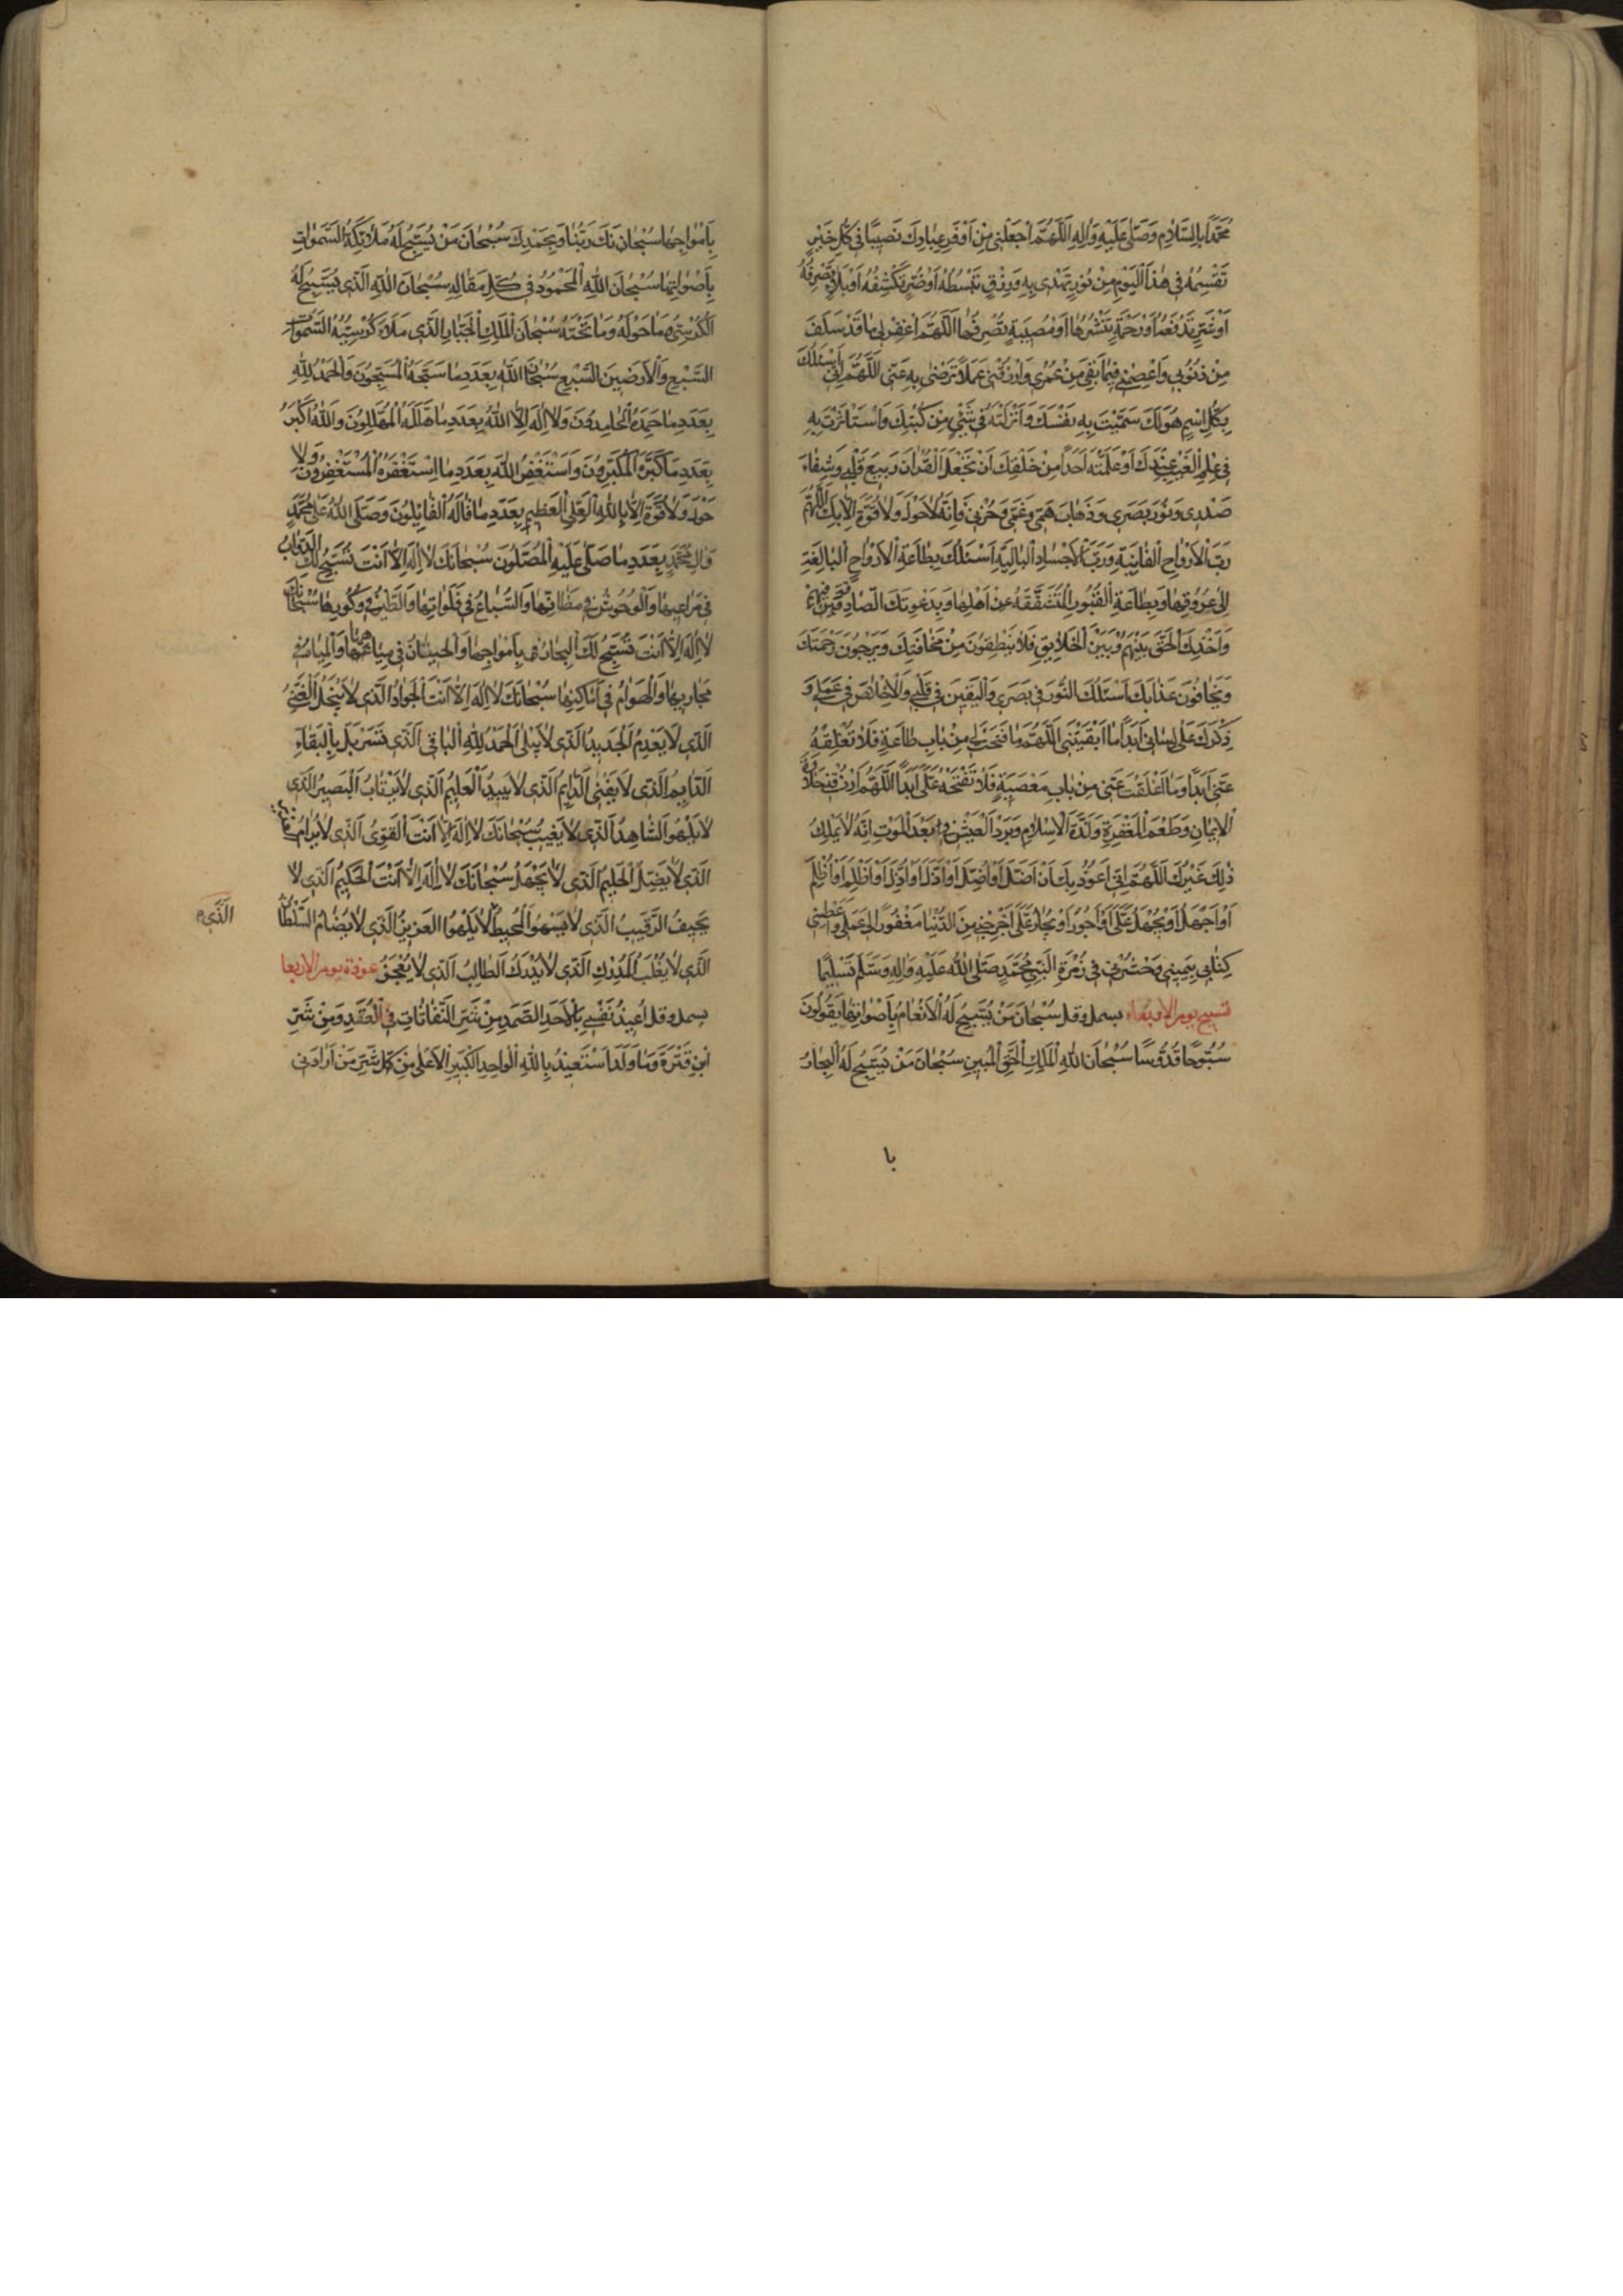 مُحَمَّدًا بِالسَّلَامِ وَصَلِّ عَلَيْهِ وَاٰلِهِ اَللّٰهُمَّ اجْعَلْنِى مِنْ اَوْفَرِ عِبَادِكَ نَصِيبًا فِى كُلِّ خَيْرٍ
تَقْسِمُهُ فِى هٰذَا الْيَوْمِ مِنْ نُورٍ تَهْدِى بِهِ وَرِزْقٍ تَبْسُطُهُ اَوْ ضُرٍّ تَكْشِفُهُ اَوْ بَلَاءٍ تَصْرِفُهُ
اَوْ شَرٍّ تَدْفَعُهُ اَوْ رَحْمَةٍ تَنْشُرُهَا اَوْ مُصِيبَةٍ تَصْرِفُهَا اَللّٰهُمَّ اغْفِرْ لِى مَا قَدْ سَلَفَ
مِنْ ذُنُوبِى وَاعْصِمْنِى فِيمَا بَقِىَ مِنْ عُمْرِى وَارْزُقْنِى عَمَلًا تَرْضٰى بِهِ عَنِّى اَللّٰهُمَّ اِنِّى اَسْئَلُكَ
بِكُلِّ اسْمٍ هُوَ لَكَ سَمَّيْتَ بِهِ نَفْسَكَ وَاَنْزَلْتَهُ فِى شَىْءٍ مِنْ كُتُبِكَ وَاسْتَاْثَرْتَ بِهِ
فِى عِلْمِ الْغَيْبِ عِنْدَكَ اَوْ عَلَّمْتَهُ اَحَدًا مِنْ خَلْقِكَ اَنْ تَجْعَلَ الْقُرْاٰنَ رَبِيعَ قَلْبِى وَشِفَاءَ
صَدْرِى وَنُورَ بَصَرِى وَذَهَابَ هَمِّى وَغَمِّى وَحُزْنِى فَاِنَّهُ لَا حَوْلَ وَلَا قُوَّةَ اِلَّا بِكَ اَللّٰهُمَّ
رَبَّ الْاَرْوَاحِ الْفَانِيَةِ وَرَبَّ الْاَجْسَادِ الْبَالِيَةِ اَسْئَلُكَ بِطَاعَةِ الْاَرْوَاحِ الْبَالِغَةِ
اِلٰى عُرُوقِهَا وَبِطَاعَةِ الْقُبُورِ الْمُتَشَقِّقَةِ عَنْ اَهْلِهَا وَبِدَعْوَتِكَ الصَّادِقَةِ فِيهِمْ
وَاَخْذِكَ الْحَقَّ بَيْنَهُمْ وَبَيْنَ الْخَلَايِقِ فَلَا يَنْطِقُونَ مِنْ مَخَافَتِكَ وَيَرْجُونَ رَحْمَتَكَ
وَيَخَافُونَ عَذَابَكَ اَسْئَلُكَ النُّورَ فِى بَصَرِى وَالْيَقِينَ فِى قَلْبِى وَالْاِخْلَاصَ فِى عَمَلِى وَ
ذِكْرَكَ عَلٰى لِسَانِى اَبَدًا مَا اَبْقَيْتَنِى اَللّٰهُمَّ مَا فَتَحْتَ لِى مِنْ بَابِ طَاعَةٍ فَلَا تُغْلِقْهُ
عَنِّى اَبَدًا وَمَا اَغْلَقْتَ عَنِّى مِنْ بَابِ مَعْصِيَةٍ فَلَا تَفْتَحْهُ عَلَىَّ اَبَدًا اَللّٰهُمَّ ارْزُقْنِى حَلَاوَةَ
الْاِيمَانِ وَطَعْمَ الْمَغْفِرَةِ وَلَذَّةَ الْاِسْلَامِ وَبَرْدَ الْعَيْشِ بَعْدَ الْمَوْتِ اِنَّهُ لَا يَمْلِكُ
ذٰلِكَ غَيْرُكَ اَللّٰهُمَّ اِنِّى اَعُوذُ بِكَ اَنْ اَضِلَّ اَوْ اُضَلَّ اَوْ اَذِلَّ اَوْ اُذَلَّ اَوْ اَظْلِمَ اَوْ اُظْلَمَ
اَوْ اَجْهَلَ اَوْ يُجْهَلَ عَلَىَّ اَوْ اَجُورَ اَوْ يُجَارَ عَلَىَّ اَخْرِجْنِى مِنَ الدُّنْيَا مَغْفُورًا لِى عَمَلِى وَاَعْطِنِى
كِتَابِى بِيَمِينِى وَاحْشُرْنِى فِى زُمْرَةِ النَّبِىِّ مُحَمَّدٍ صَلَّى اللّٰهُ عَلَيْهِ وَاٰلِهِ وَسَلَّمَ تَسْلِيمًا
تسبيح يوم الاربعاء بسمل وقل سُبْحَانَ مَنْ يُسَبِّحُ لَهُ الْاَنْعَامُ بِاَصْوَاتِهَا يَقُولُونَ
سُبُّوحًا قُدُّوسًا سُبْحَانَ اللّٰهِ الْمَلِكِ الْحَقِّ الْمُبِينِ سُبْحَانَ مَنْ يُسَبِّحُ لَهُ الْبِحَارُ
با
بِاَمْوَاجِهَا سُبْحَانَكَ رَبَّنَا وَبِحَمْدِكَ سُبْحَانَ مَنْ يُسَبِّحُ لَهُ مَلَائِكَةُ السَّمٰوَاتِ
بِاَصْوَاتِهَا سُبْحَانَ اللّٰهِ الْمَحْمُودِ فِى كُلِّ مَقَالِهِ سُبْحَانَ اللّٰهِ الَّذِى يُسَبِّحُ لَهُ
الْكُرْسِىُّ وَمَا حَوْلَهُ وَمَا تَحْتَهُ سُبْحَانَ الْمَلِكِ الْجَبَّارِ الَّذِى مَلَاَ كُرْسِيُّهُ السَّمٰوَاتِ
السَّبْعَ وَالْاَرَضِينَ السَّبْعَ سُبْحَانَ اللّٰهِ بِعَدَدِ مَا سَبَّحَهُ الْمُسَبِّحُونَ وَالْحَمْدُ لِلّٰهِ
بِعَدَدِ مَا حَمِدَهُ الْحَامِدُونَ وَلَا اِلٰهَ اِلَّا اللّٰهُ بِعَدَدِ مَا هَلَّلَهُ الْمُهَلِّلُونَ وَاللّٰهُ اَكْبَرُ
بِعَدَدِ مَا كَبَّرَهُ الْمُكَبِّرُونَ وَاَسْتَغْفِرُ اللّٰهَ بِعَدَدِ مَا اسْتَغْفَرَهُ الْمُسْتَغْفِرُونَ وَلَا
حَوْلَ وَلَا قُوَّةَ اِلَّا بِاللّٰهِ الْعَلِىِّ الْعَظِيمِ بِعَدَدِ مَا قَالَهُ الْقَائِلُونَ وَصَلَّى اللّٰهُ عَلٰى مُحَمَّدٍ
وَاٰلِ مُحَمَّدٍ بِعَدَدِ مَا صَلّٰى عَلَيْهِ الْمُصَلُّونَ سُبْحَانَكَ لَا اِلٰهَ اِلَّا اَنْتَ تُسَبِّحُ لَكَ الدَّوَابُّ
فِى مَرَاعِيهَا وَالْوُحُوشُ فِى مَظَانِّهَا وَالسِّبَاعُ فِى فَلَوَاتِهَا وَالطَّيْرُ فِى وُكُورِهَا سُبْحَانَكَ
لَا اِلٰهَ اِلَّا اَنْتَ تُسَبِّحُ لَكَ الْبِحَارُ بِاَمْوَاجِهَا وَالْحِيتَانُ فِى مِيَاهِهَا وَالْمِيَاهُ فِى
مَجَارِيهَا وَالْهَوَامُّ فِى اَمَاكِنِهَا سُبْحَانَكَ لَا اِلٰهَ اِلَّا اَنْتَ الْجَوَادُ الَّذِى لَا يَبْخَلُ الْغَنِىُّ
الَّذِى لَا يَعْدِمُ الْجَدِيدُ الَّذِى لَا يَبْلٰى اَلْحَمْدُ لِلّٰهِ الْبَاقِى الَّذِى تَسَرْبَلَ بِالْبَقَاءِ
الدَّايِمُ الَّذِى لَا يَفْنٰى الَّذِى لَا يَبِيدُ الْعَلِيمُ الَّذِى لَا يَرْتَابُ الْبَصِيرُ الَّذِى
لَا يَلْهُو الشَّاهِدُ الَّذِى لَا يَغِيبُ سُبْحَانَكَ لَا اِلٰهَ اِلَّا اَنْتَ الْقَوِىُّ الَّذِى لَا يُرَامُ
الَّذِى لَا يَضِلُّ الْحَلِيمُ الَّذِى لَا يَجْهَلُ سُبْحَانَكَ لَا اِلٰهَ اِلَّا اَنْتَ الْحَكِيمُ الَّذِى لَا
يَحِيفُ الرَّقِيبُ الَّذِى لَا يَسْهُو الْمُحِيطُ لَا يَلْهُو الْعَزِيزُ الَّذِى لَا يُضَامُ السُّلْطَانُ
الَّذِى
الَّذِى لَا يُغْلَبُ الْمُدْرِكُ الَّذِى لَا يُدْرَكُ الطَّالِبُ الَّذِى لَا يَعْجَزُ عوذة يوم الاربعا
بسمل وقل اُعِيذُ نَفْسِى بِالْاَحَدِ الصَّمَدِ مِنْ شَرِّ النَّفَّاثَاتِ فِى الْعُقَدِ وَمِنْ شَرِّ
ابْنِ قَتْرَةَ وَمَا وَلَدَ اَسْتَعِيذُ بِاللّٰهِ الْوَاحِدِ الْكَبِيرِ الْاَعْلٰى مِنْ كُلِّ شَرِّ مَنْ اَرَادَنِى